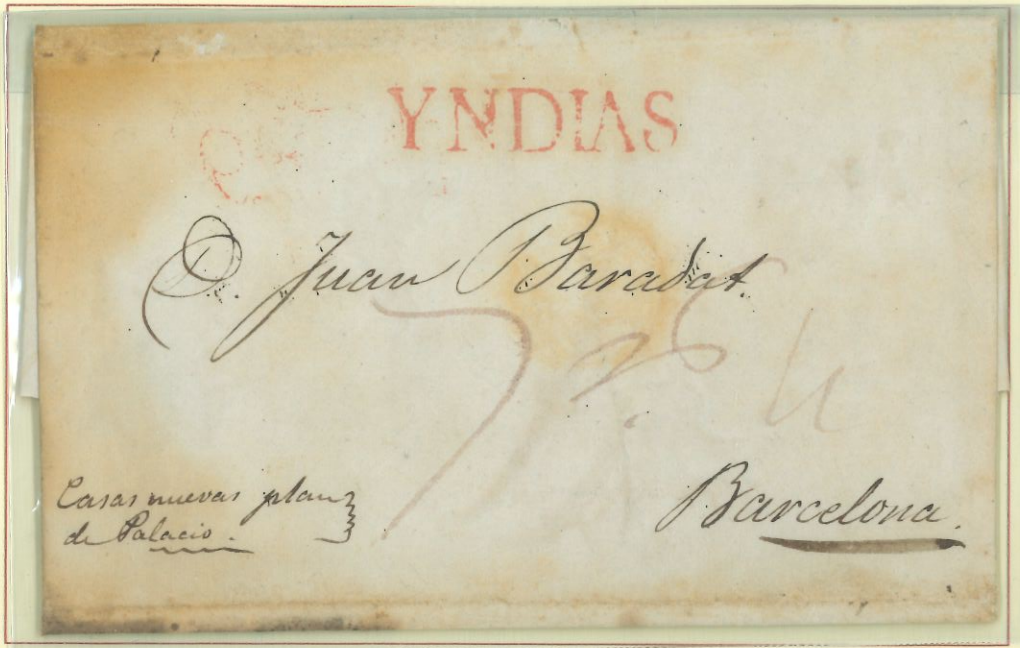 YNDIAS
D. Juan Baradat.
Casas nuevas plau
de Palacio.
Barcelona.